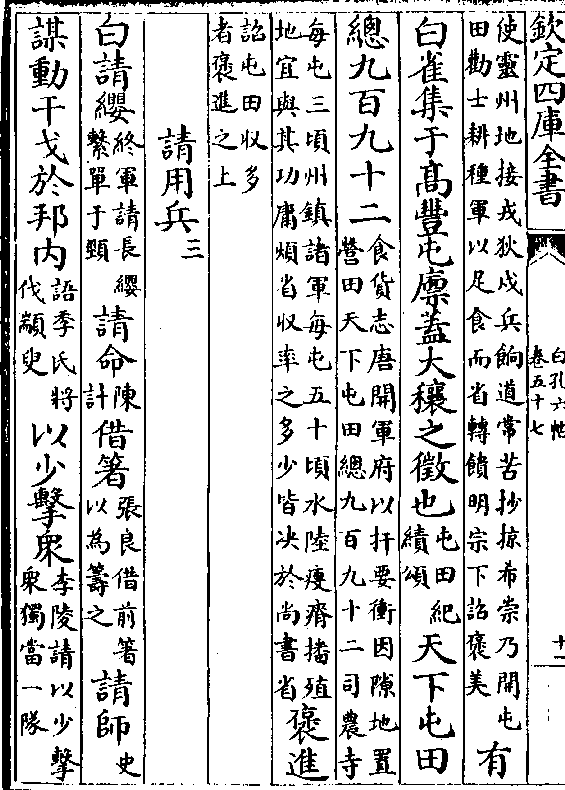 欽定四庫全書
白孔六帖
卷五十七
十一
使靈州地接戎狄戍兵餉道常苦抄掠希崇乃開屯
田勸士耕種軍以足食而省轉饋明宗下詔褒美
有
白雀集于高豐屯廪蓋大穰之徵也
屯田紀
績頌
天下屯田
總九百九十二
食貨志唐開軍府以扞要衝因隙地置
營田天下屯田總九百九十二司農寺
每屯三頃州鎮諸軍每屯五十頃水陸瘦瘠播殖
地宜與其功庸煩省収率之多少皆决於尚書省
褒進
詔屯田収多
者褒進之上
請用兵三
白請纓
終軍請長纓
繫單于頸
請命
陳
計
借箸
張良借前箸
以為籌之
請師
史
謀動干戈於邦内
語季氏將
伐顓臾
以少擊衆
李陵請以少擊
衆獨當一隊